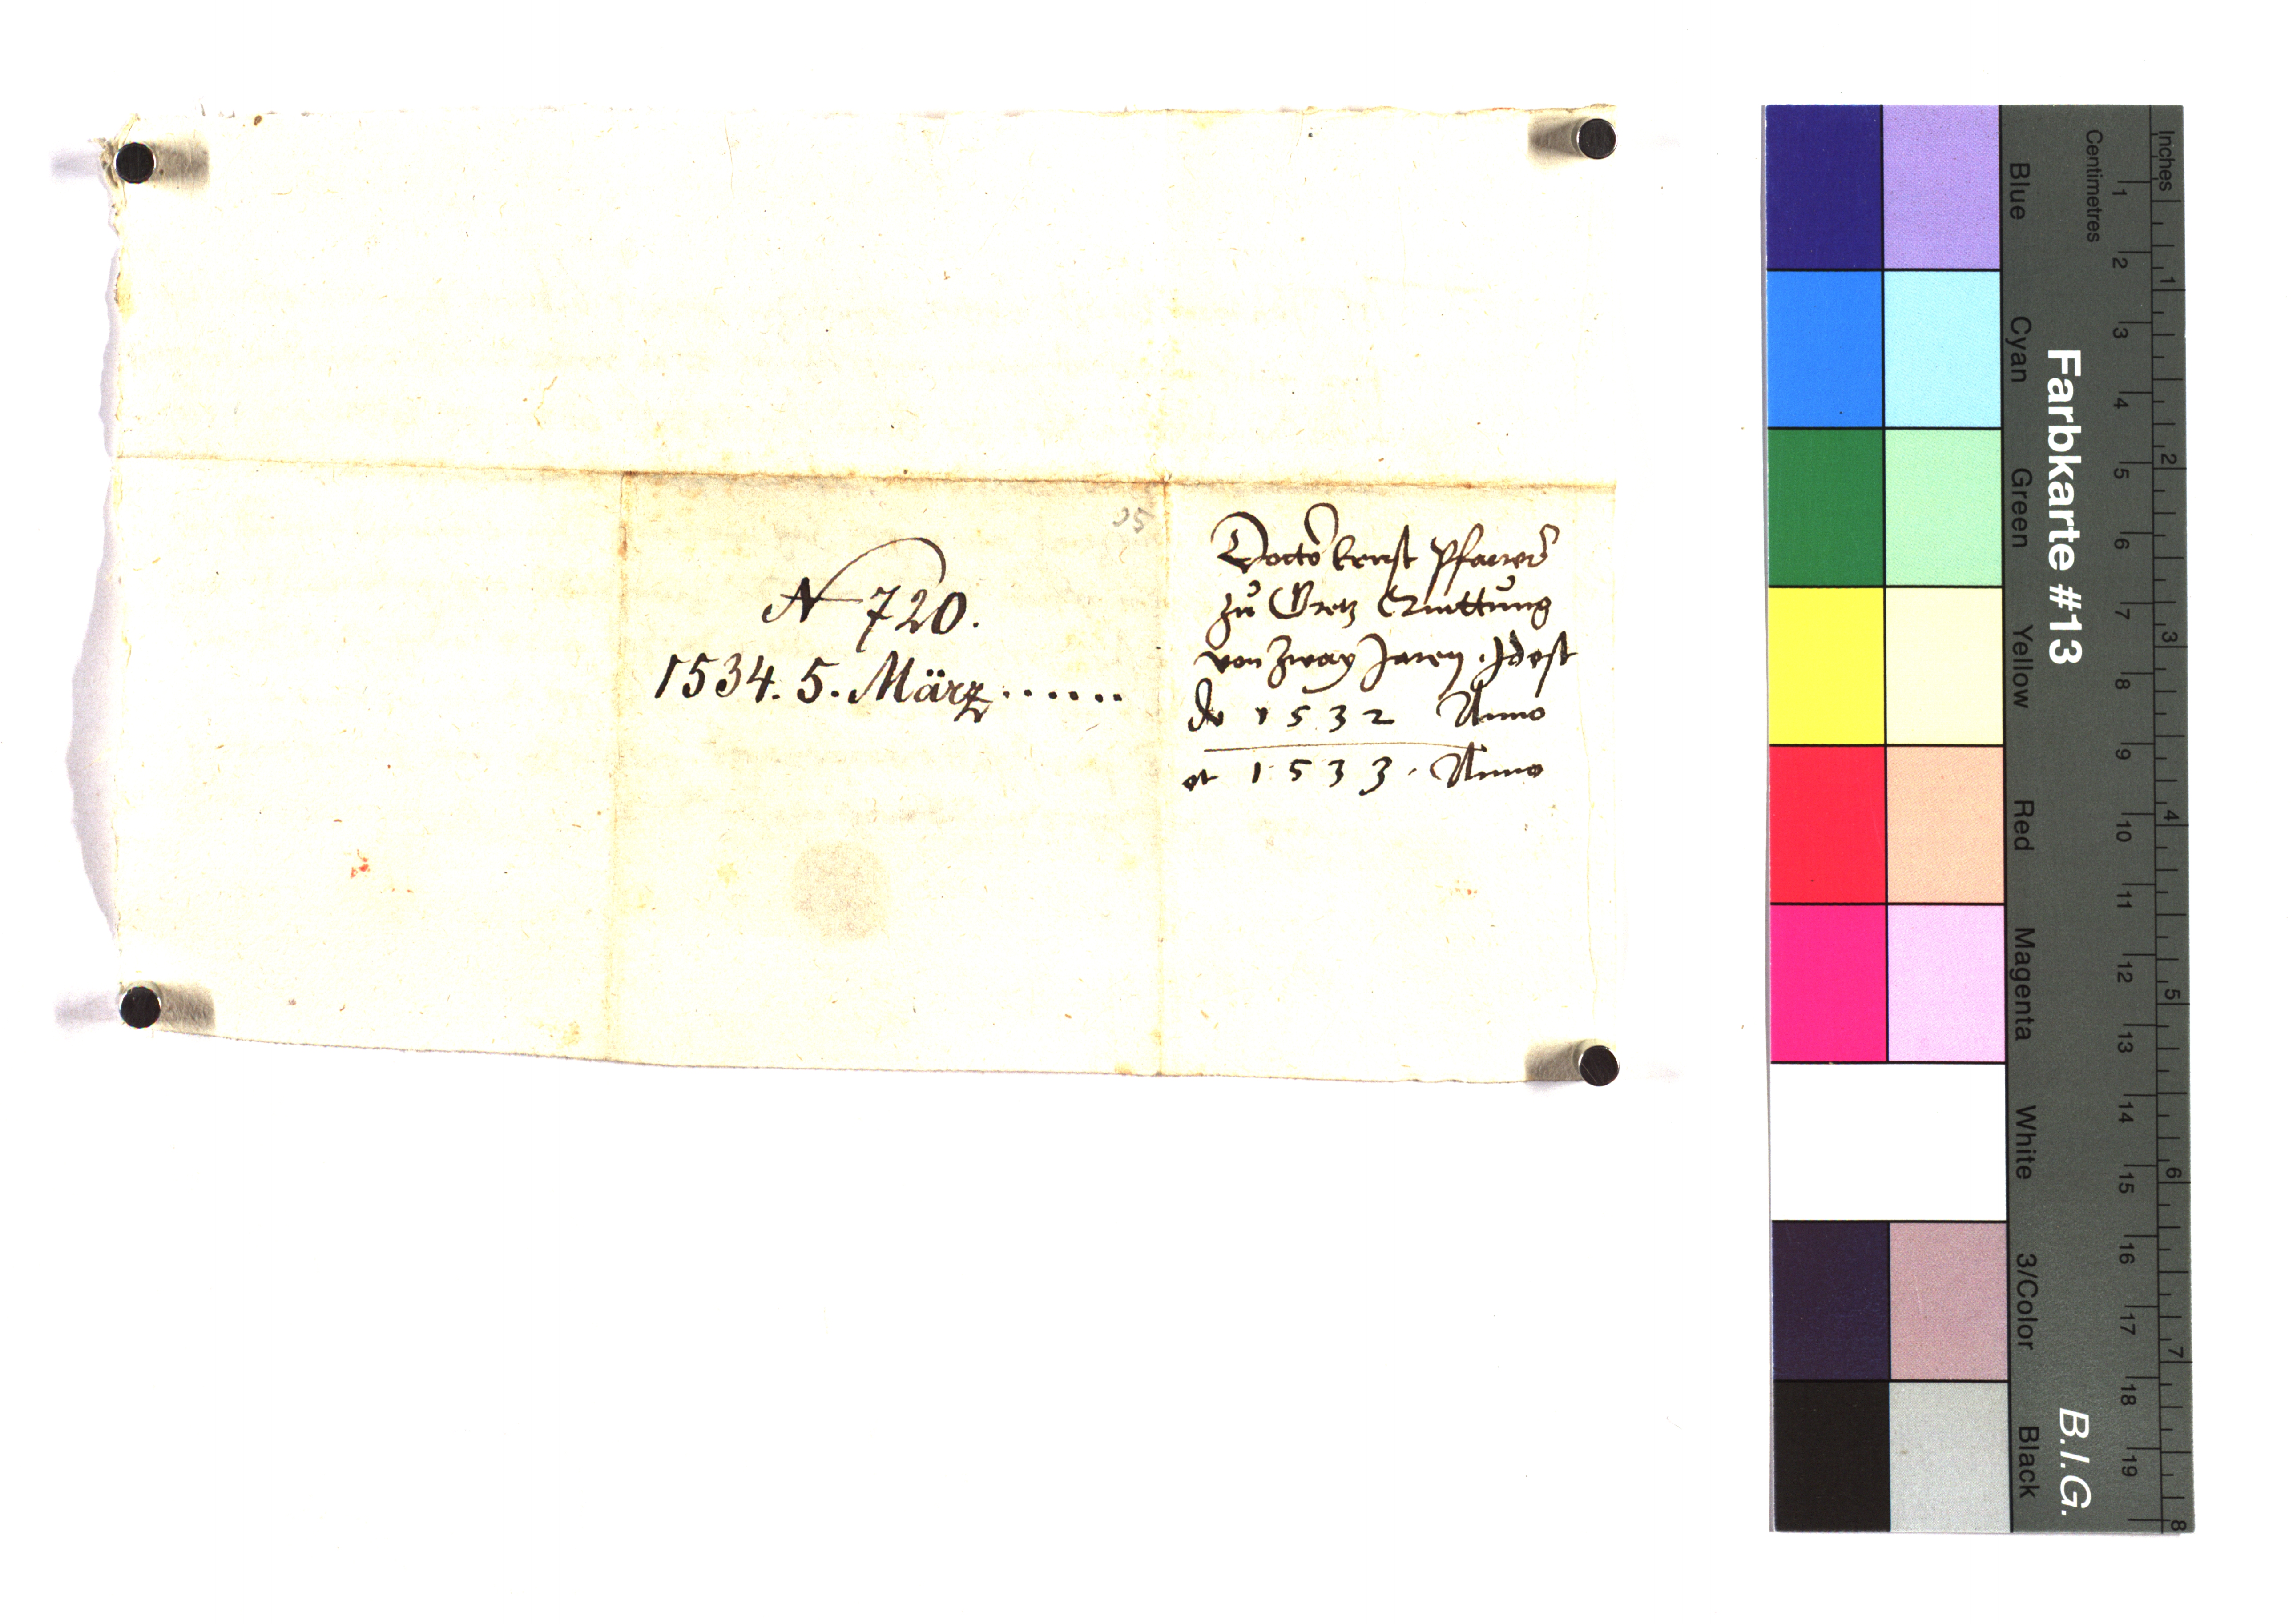 N 720.
1534. 5. März......
05
Doctor Ernst Pfarrer
zu Gretz Quittung
von zway Jaren. Idest
de 1532 Anno
et 1533. Anno
Farbkarte #13
B.I.G.
Centimetres
Inches
Blue
Cyan
Green
Yellow
Red
Magenta
White
3/Color
Black
1 2 3 4 5 6 7 8 9 10 11 12 13 14 15 16 17 18 19
1 2 3 4 5 6 7 8